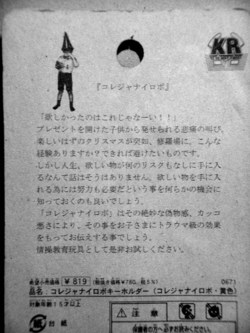 KR
『コレジャナイロボ』
「欲しかったのはこれじゃなーい！！」
プレゼントを開けた子供から発せられる悲痛の叫び、
楽しいはずのクリスマスが突如、修羅場に。こんな
経験ありますか？できれば避けたいものです。
しかし人生、欲しい物が何のリスクもなしに手に入
るなんて話はそうはありません。欲しい物を手に入
れる為には努力も必要だという事を何らかの機会に
知っておくのも良いでしょう。
「コレジャナイロボ」はその絶妙な偽物感、カッコ
悪さにより、その事をお子さまにトラウマ級の効果
をもってお伝えする事でしょう。
情操教育玩具として是非お試しください。
希望小売価格 ￥819（税抜き価格￥780、税5%） 0671
品名：コレジャナイロボキーホルダー（コレジャナイロボ・黄色）
対象年齢15才以上
台紙
注意